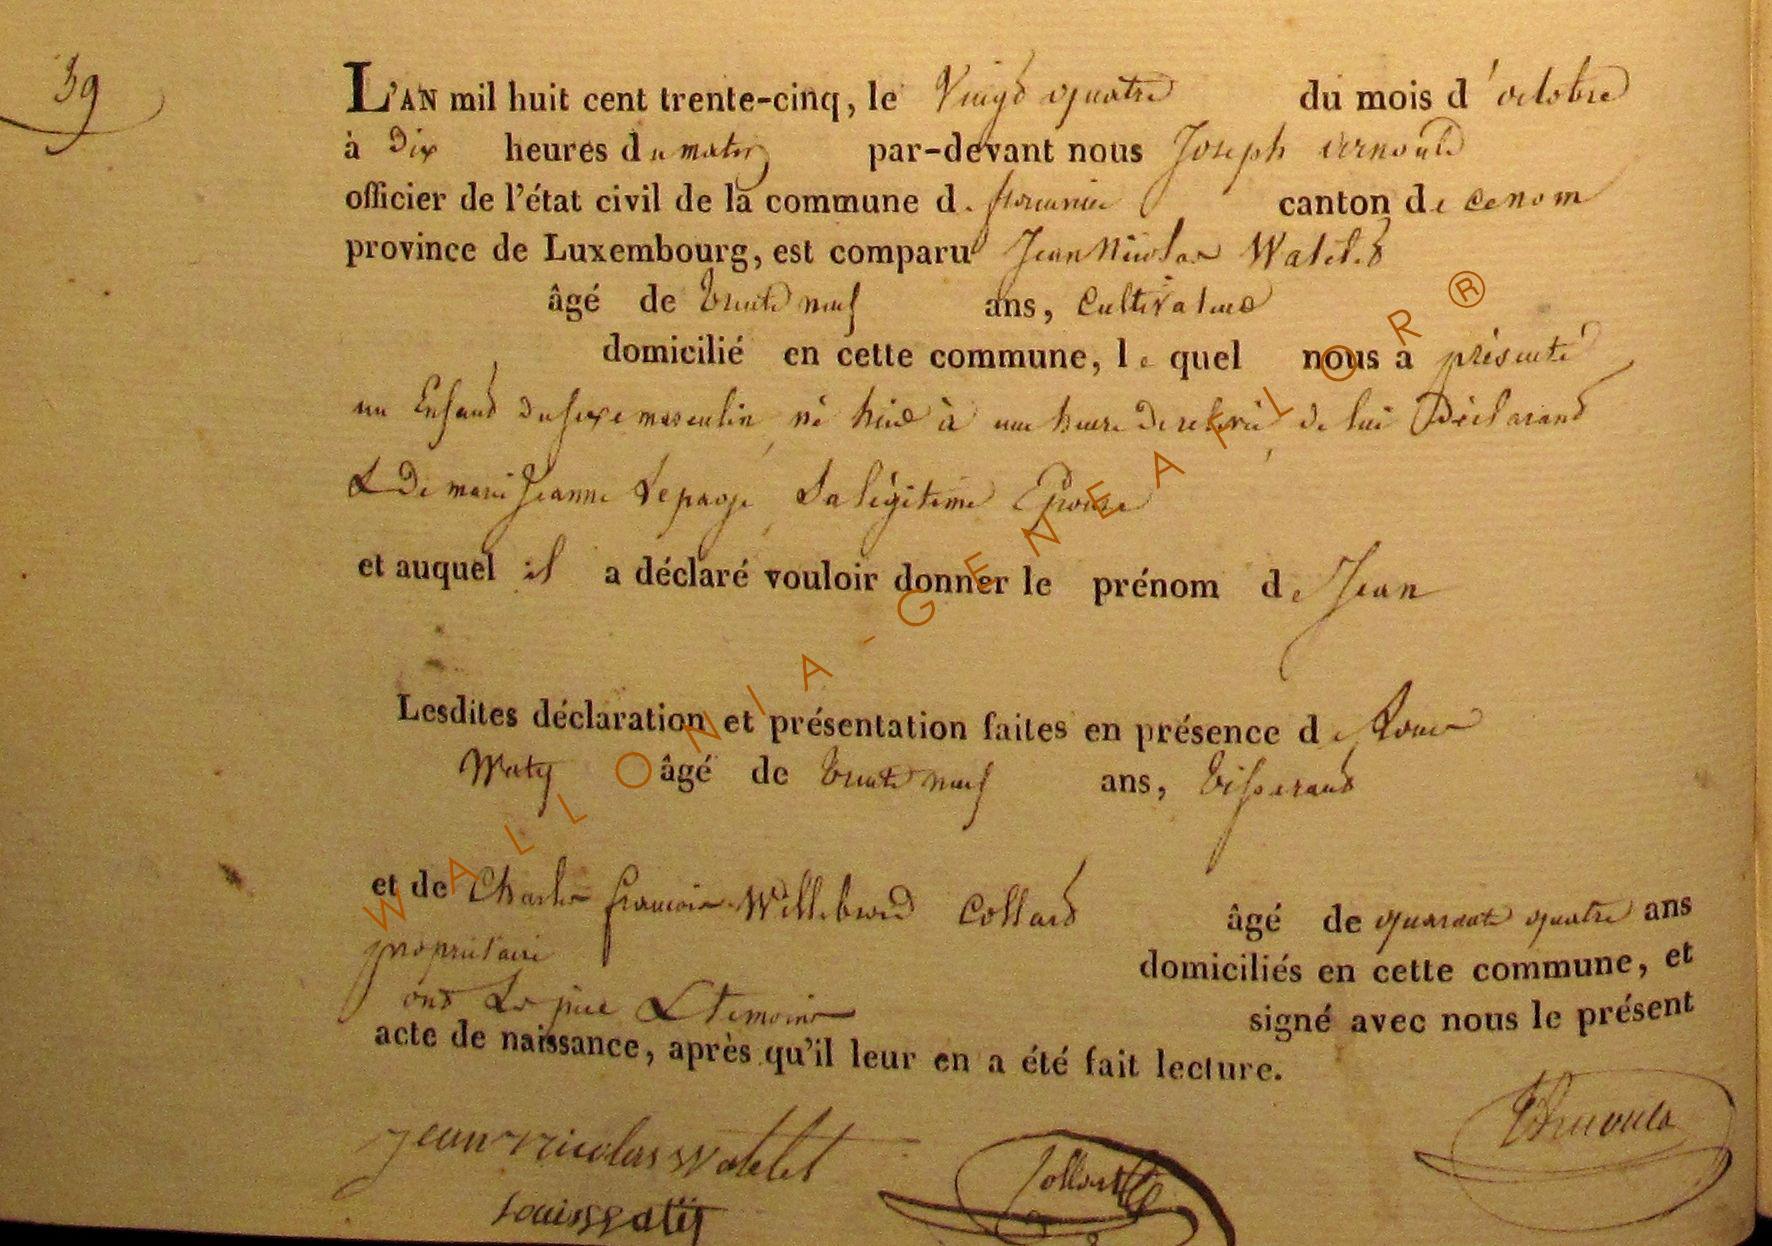 39
L'AN mil huit cent trente-cinq, le Vingt quatre du mois d'octobre
à dix heures du matin par-devant nous Joseph arnould
officier de l'état civil de la commune de canton de
province de Luxembourg, est comparu Jean Nicolas Watelet
âgé de trente neuf ans, Cultivateur
domicilié en cette commune, lequel nous a présenté
un Enfant du sexe masculin né hier à une heure de relevée, de lui Déclarant
& De marie Jeanne Lepage, Sa légitime Epouse
et auquel il a déclaré vouloir donner le prénom de Jean
Lesdites déclaration et présentation faites en présence de Louis
Waty âgé de trente neuf ans, tisserand
et de Charles francois Willebrord Collard âgé de quarante quatre ans
propriétaire domiciliés en cette commune, et
ont Les père & temoins signé avec nous le présent
acte de naissance, après qu'il leur en a été fait lecture.
Jean Nicolas Watelet
Collard
WALLONIA-GENEAFLOR®